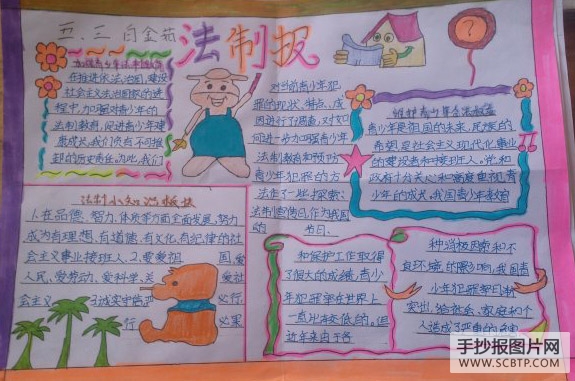 五、三自金茁
法制报
加强青少年法制教育
在推进依法治国,建设
社会主义法治国家的进
程中,加强对青少年的
法制教育,促进青少年健
康成长,我们负有不可推
卸的历史责任。为此,我们
对当前青少年犯
罪的现状、特点、成
因进行了调查,对如
何进一步加强青少年
法制教育和预防
青少年犯罪的方
法作了一些探索:
法制宣传日,作为我国
的 节日.
维护青少年合法权益
青少年是祖国的未来,民族的
希望,是社会主义现代化事业
的建设者和接班人。党和
政府十分关心和高度重视青少
年的成长。我国青少年教育
法制小知识板块
1.在品德、智力、体质等方面全面发展,努力
成为有理想、有道德、有文化、有纪律的社
会主义事业接班人.2.要爱祖国,爱
人民、爱劳动、爱科学、爱社
会主义
和保护工作取得
了很大的成绩,青少
年犯罪率在世界上
一直比较低的。但
近年来由于各
种消极因素和不
良环境的影响,我国青
少年犯罪率日渐
突出,给社会、家庭和个
人造成了严重的
手抄报图片网
WWW.SCBTP.COM